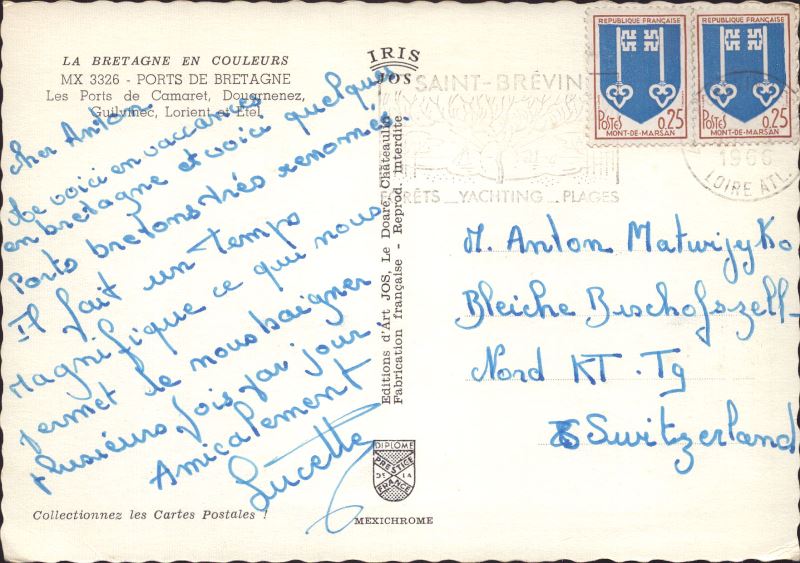 LA BRETAGNE EN COULEURS
MX 3326 - PORTS DE BRETAGNE
Les Ports de Camaret, Douarnenez,
Guilvinec, Lorient et Etel
Cher Anton
Me voici en vacances
en bretagne et voici quelques
Ports bretons très renomés.
Il fait un temps
Magnifique ce qui nous
permet de nous baigner
plusieurs fois par jour.
Amicalement
Lucette
Collectionnez les Cartes Postales !
IRIS
JOS
Editions d'Art JOS, Le Doaré, Châteaulin
Fabrication française - Reprod. interdite
DIPLOME
PRESTIGE
DE LA
FRANCE
MEXICHROME
SAINT-BRÉVIN
FORÊTS _ YACHTING _ PLAGES
REPUBLIQUE FRANÇAISE
POSTES 0,25
MONT-DE-MARSAN
REPUBLIQUE FRANÇAISE
POSTES 0,25
MONT-DE-MARSAN
1966
LOIRE ATL.
M. Anton Matwijyko
Bleiche Bischofszell-
Nord KT. Tg
Switzerland